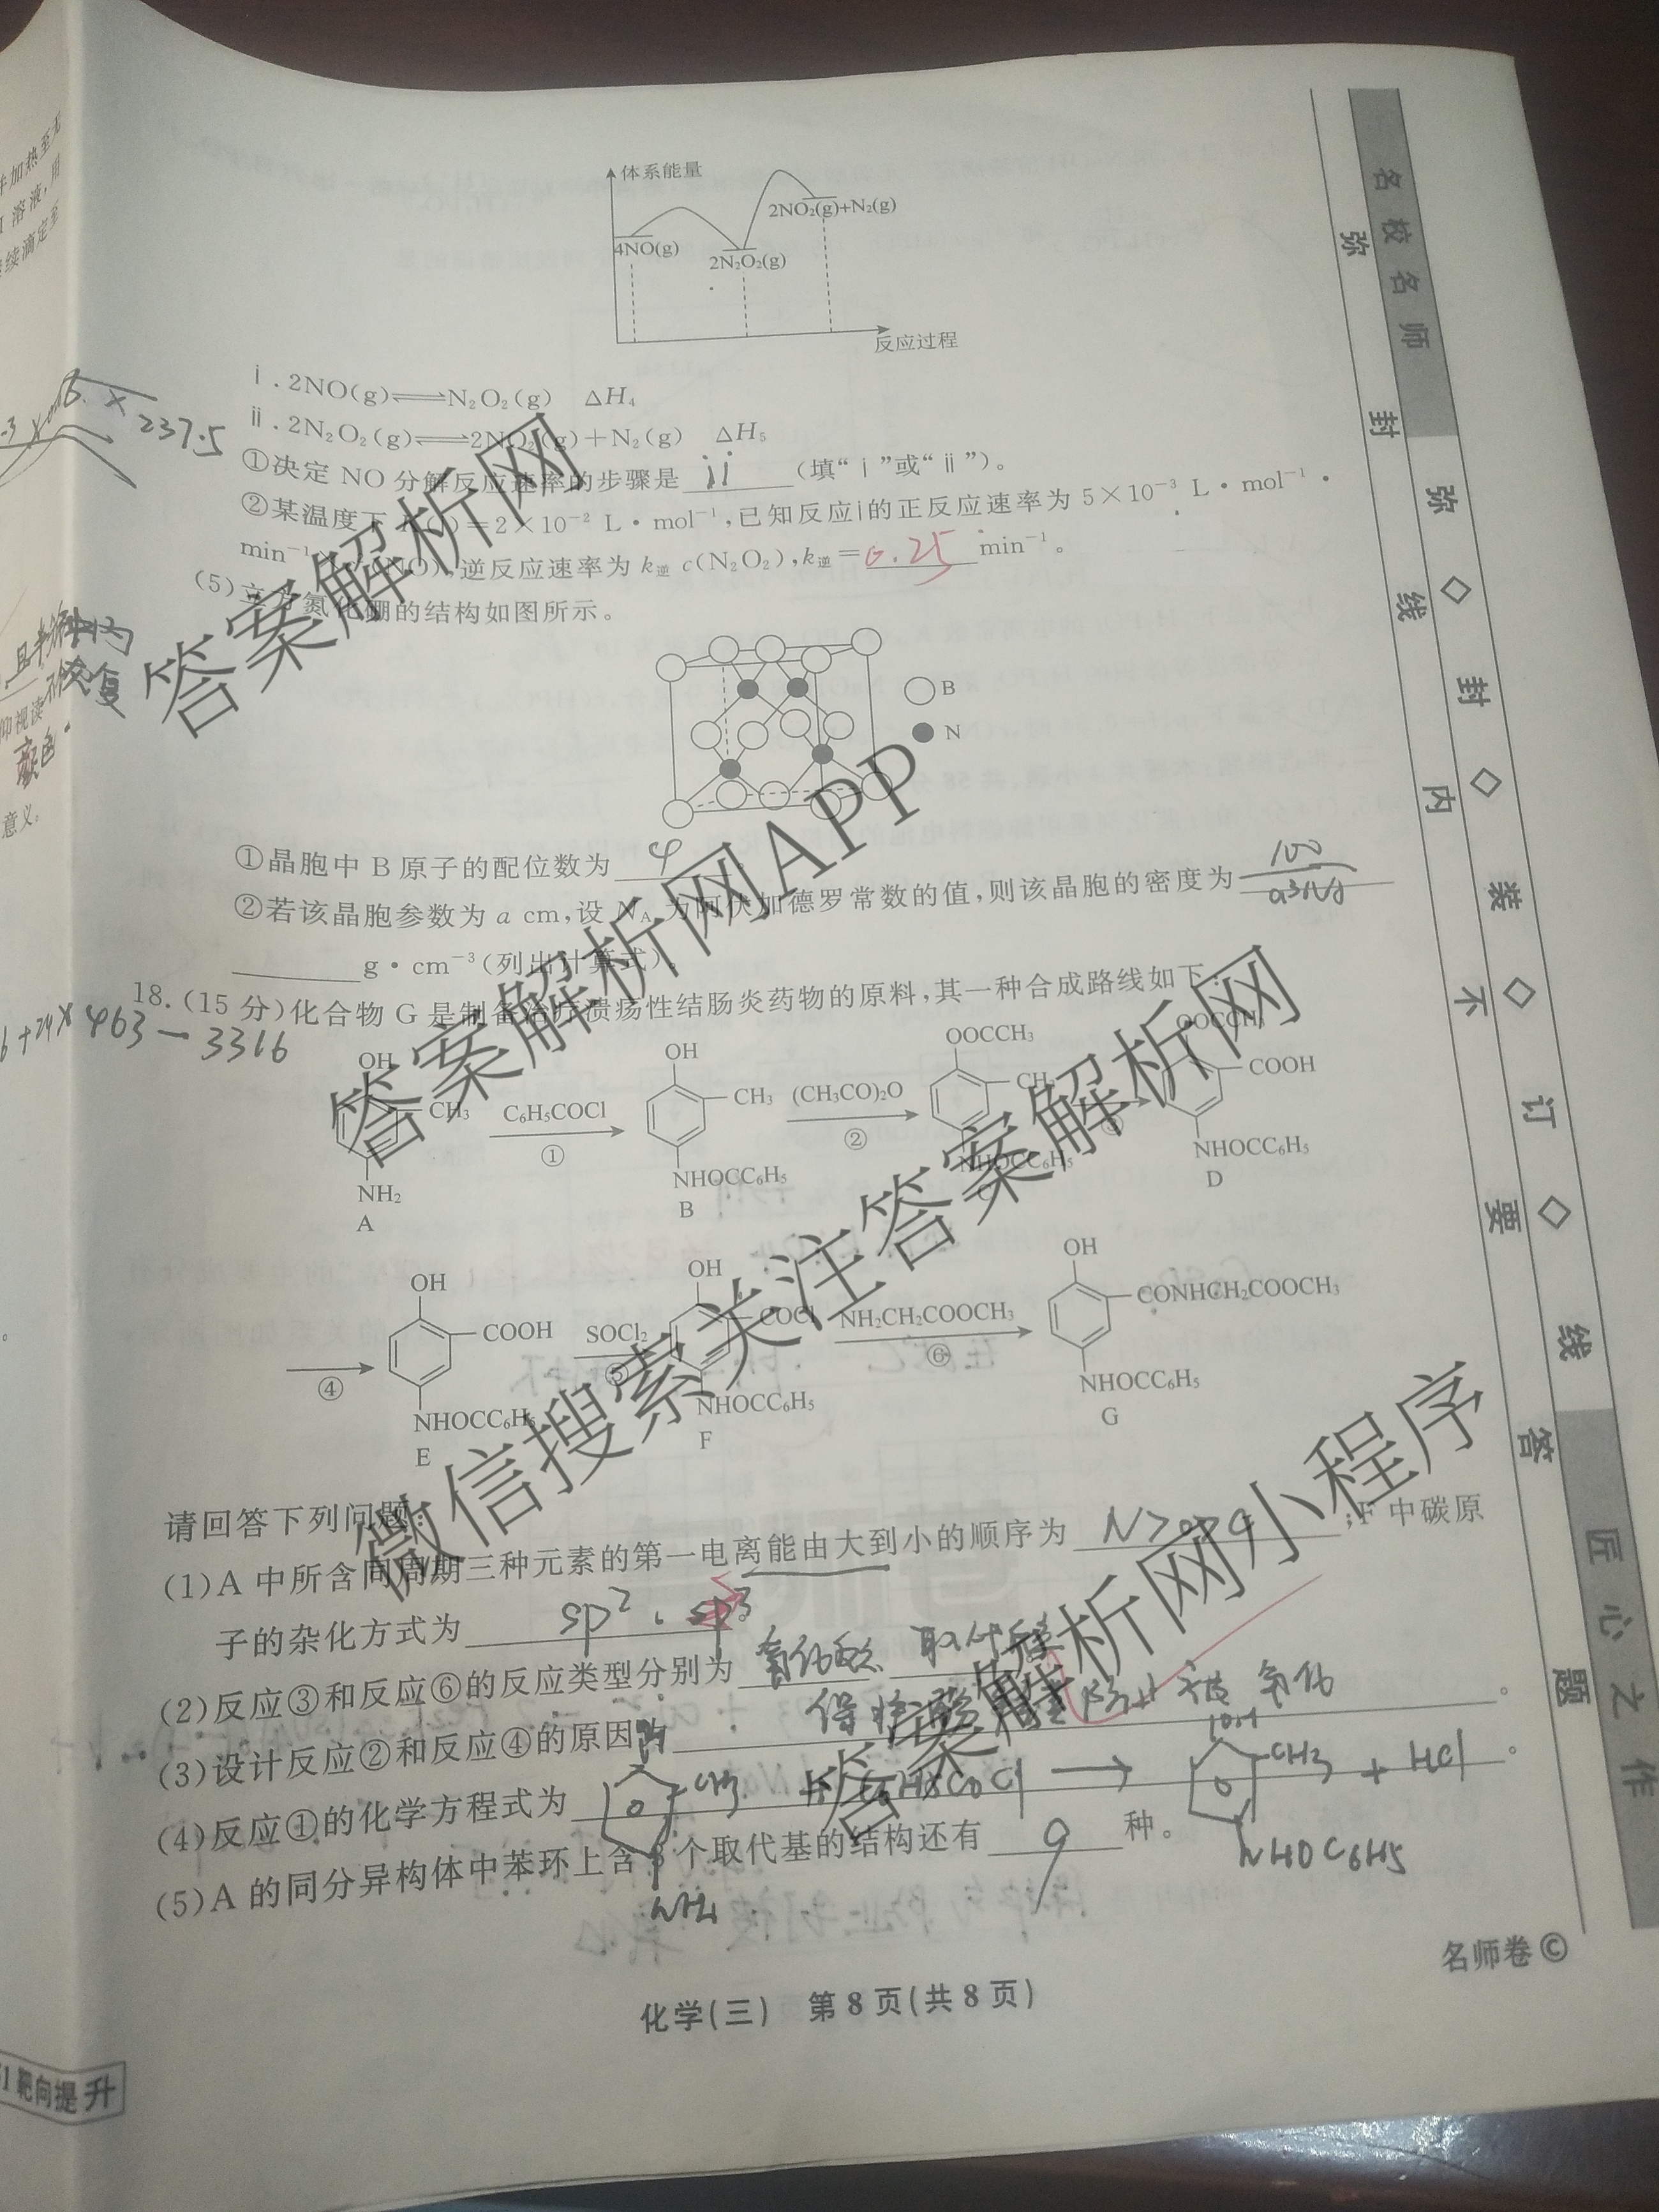 体系能量
4NO(g)
2N₂O₂(g)
2NO₂(g)+N₂(g)
反应过程
ⅰ.2NO(g)⇌N₂O₂(g) ΔH₄
ⅱ.2N₂O₂(g)⇌2NO₂(g)+N₂(g) ΔH₅
①决定 NO 分解反应速率的步骤是 ii (填“ⅰ”或“ⅱ”)。
②某温度下 =2×10⁻² L·mol⁻¹,已知反应ⅰ的正反应速率为 5×10⁻³ L·mol⁻¹·
min⁻¹ (NO),逆反应速率为 k逆 c(N₂O₂),k逆= 0.25 min⁻¹。
(5)立方氮化硼的结构如图所示。
B
N
①晶胞中 B 原子的配位数为 4 。
②若该晶胞参数为 a cm,设 N_A 为阿伏加德罗常数的值,则该晶胞的密度为 100
g·cm⁻³(列出计算式)。
18.(15 分)化合物 G 是制备治疗溃疡性结肠炎药物的原料,其一种合成路线如下:
OH CH₃ NH₂ A
C₆H₅COCl ①
OH CH₃ NHOCC₆H₅ B
(CH₃CO)₂O ②
OOCCH₃ CH₃ NHOCC₆H₅ C
③
OOCCH₃ COOH NHOCC₆H₅ D
④
OH COOH NHOCC₆H₅ E
SOCl₂ ⑤
OH COCl NHOCC₆H₅ F
NH₂CH₂COOCH₃ ⑥
OH CONHCH₂COOCH₃ NHOCC₆H₅ G
请回答下列问题:
(1)A 中所含同周期三种元素的第一电离能由大到小的顺序为 N>O>C ;F 中碳原
子的杂化方式为 sp²、sp³
(2)反应③和反应⑥的反应类型分别为 氧化反应 取代反应
(3)设计反应②和反应④的原因为 防止 被氧化 。
(4)反应①的化学方程式为 CH3 + C6H5COCl → OH CH3 + HCl 。
(5)A 的同分异构体中苯环上含 3 个取代基的结构还有 9 种。
NH2
NHOC6H5
化学(三) 第 8 页(共 8 页)
名师卷©
靶向提升
名校名师
匠心之作
弥 封 线 内 不 要 答 题
弥◇封◇装◇订◇线
237.5
463-3316
意义:
答案解析网
答案解析网APP
答案解析网
微信搜索关注答案解析网
答案解析网小程序